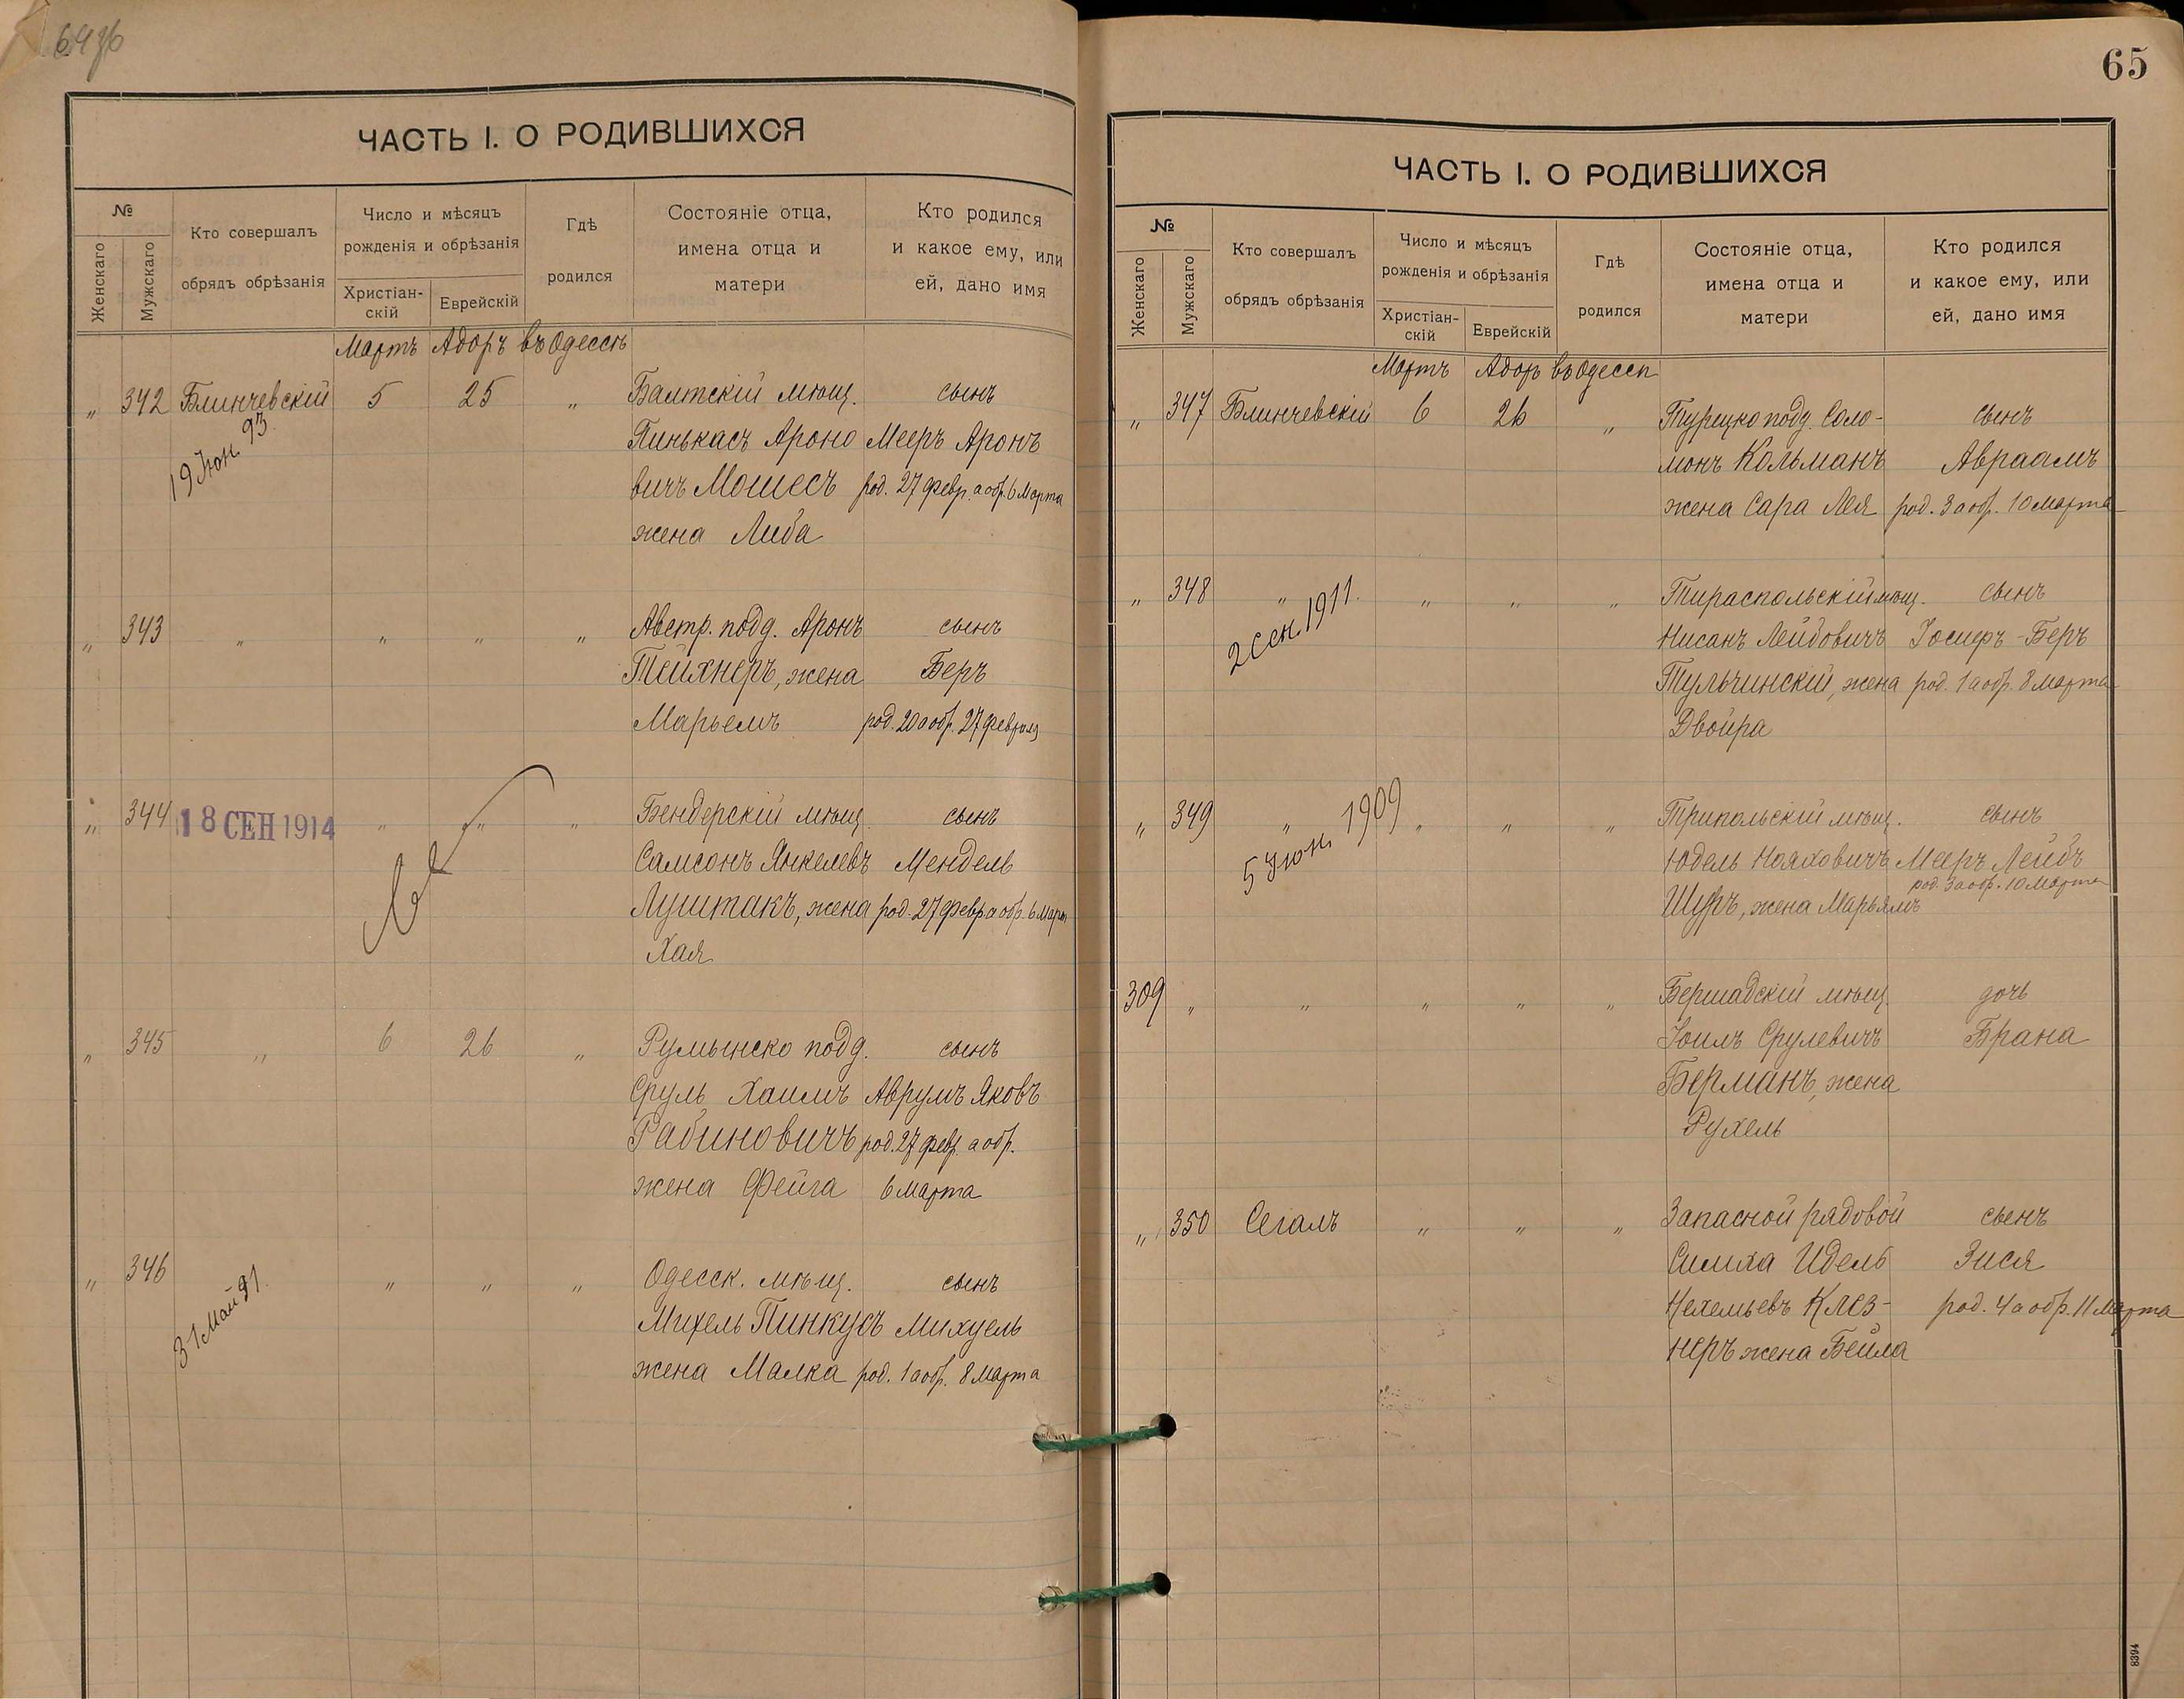 ЧАСТЬ I. О РОДИВШИХСЯ
№
Женскаго
Мужскаго
Кто совершалъ
обрядъ обрѣзанія
Число и мѣсяцъ
рожденія и обрѣзанія
Христіан-
скій
Еврейскій
Гдѣ
родился
Состояніе отца,
имена отца и
матери
Кто родился
и какое ему, или
ей, дано имя
Мартъ Адаръ въ Одессѣ
„ 342 Блинчевскій 5 25 „ Балтскій мѣщ. сынъ
19 Іюн. 93.
Пинькасъ Ароно Мееръ Аронъ
вичъ Мошесъ род. 27 февр. а обр. 6 Марта
жена Либа
„ 343 „ „ „ „ Австр. подд. Аронъ сынъ
Тейхнеръ, жена Беръ
Марьемъ род. 20 а обр. 27 февраля
„ 344 18 СЕН 1914 „ „ „ Бендерскій мѣщ. сынъ
Самсонъ Янкелевъ Мендель
Луштакъ, жена род. 27 февр а обр. 6 Март
Хая
„ 345 „ 6 26 „ Румынско подд. сынъ
Сруль Хаимъ Аврумъ Яковъ
Рабиновичъ род. 27 февр. а обр.
жена Фейга 6 Марта
„ 346 „ „ „ Одесск. мѣщ. сынъ
31 Май 91.
Михель Пинкусъ Михуель
жена Малка род. 1 а обр. 8 Марта
65
ЧАСТЬ I. О РОДИВШИХСЯ
№
Женскаго
Мужскаго
Кто совершалъ
обрядъ обрѣзанія
Число и мѣсяцъ
рожденія и обрѣзанія
Христіан-
скій
Еврейскій
Гдѣ
родился
Состояніе отца,
имена отца и
матери
Кто родился
и какое ему, или
ей, дано имя
Мартъ Адаръ въ Одессѣ
„ 347 Блинчевскій 6 26 „ Турецко подд. Соло- сынъ
монъ Кольманъ Авраамъ
жена Сара Лея род. 3 а обр. 10 марта
„ 348 „ „ „ „ Тираспольскій мѣщ. сынъ
2 Сен. 1911.
Нисанъ Лейбовичъ Іосифъ-Беръ
Тульчинскій, жена род. 1 а обр. 8 марта
Двойра
„ 349 „ „ „ „ Трипольскій мѣщ. сынъ
5 Іюн. 1909
Юдель Нояховичъ Мееръ Лейбъ
род. 3 а обр. 10 Марта
Шуръ, жена Марьямъ
309 „ „ „ „ „ Бершадскій мѣщ. дочь
Іоилъ Срулевичъ Брана
Берманъ, жена
Рухель
„ 350 Сегалъ „ „ „ Запасной рядовой сынъ
Симха Идель Зися
Нехемьевъ Клез- род. 4 а обр. 11 Марта
неръ жена Бейла
8394